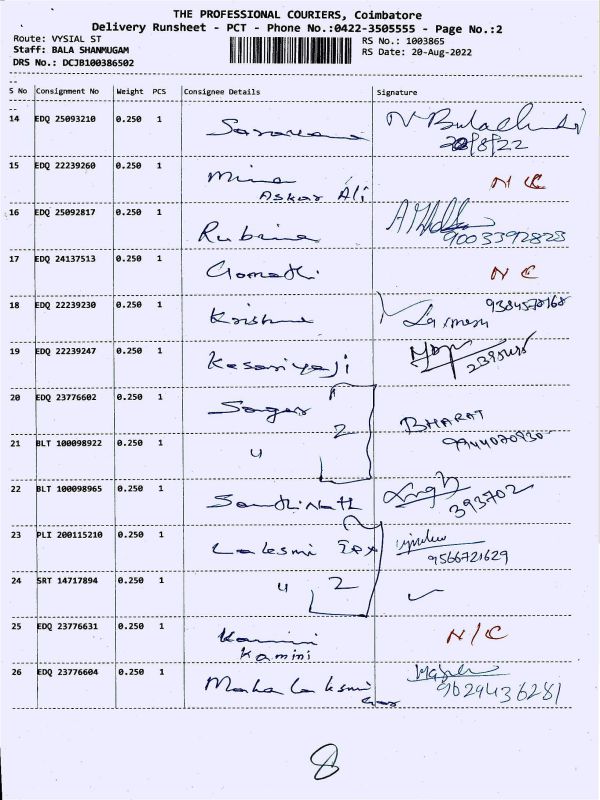 THE PROFESSIONAL COURIERS, Coimbatore
Delivery Runsheet - PCT - Phone No.:0422-3505555 - Page No.:2
Route: VYSIAL ST
Staff: BALA SHANMUGAM
DRS No.: DCJB100386502
RS No.: 1003865
RS Date: 20-Aug-2022
S No Consignment No Weight PCS Consignee Details Signature
14 EDQ 25093210 0.250 1
/8/22
15 EDQ 22239260 0.250 1 Mina N C
Askar Ali
16 EDQ 25092817 0.250 1 Rubina
9003392823
17 EDQ 24137513 0.250 1 Gomathi N C
18 EDQ 22239230 0.250 1 Krishna
19 EDQ 22239247 0.250 1 Kesariyaji
20 EDQ 23776602 0.250 1 Sagar 2 BHARAT
21 BLT 100098922 0.250 1 4
22 BLT 100098965 0.250 1 393702
23 PLI 200115210 0.250 1 Laksmi
9566721629
24 SRT 14717894 0.250 1 4 2
25 EDQ 23776631 0.250 1 Kamini N/C
Kamini
26 EDQ 23776604 0.250 1 Maha Laksmi
9629436281
8